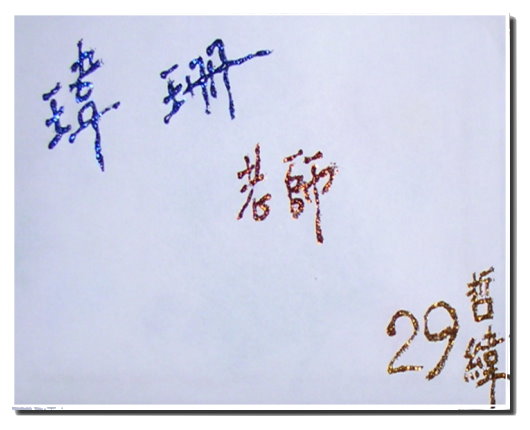 瑋珊
老師
29 哲緯